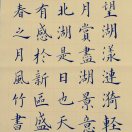 望湖漾漪輕
月賞盡湖景意
北湖是日
有感於新區盛
春之月風竹書